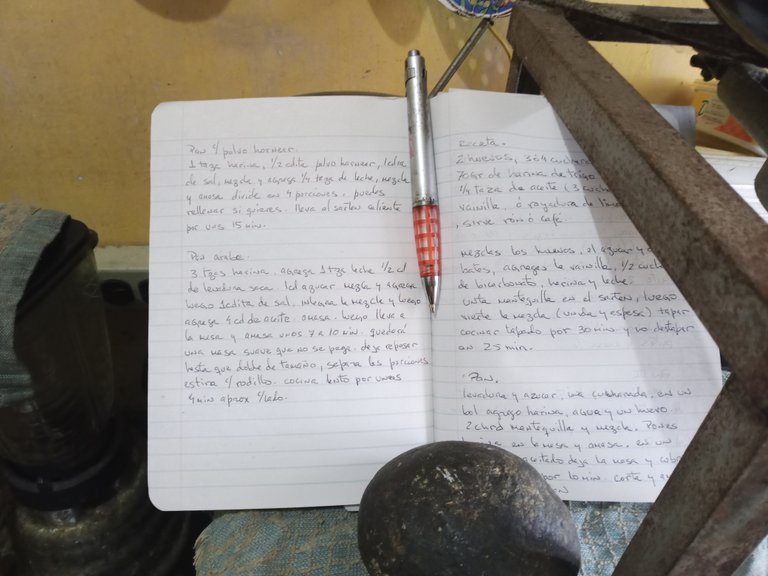 Pan c/ polvo hornear.
1 taza harina, 1/2 cdita polvo hornear, 1 cdta
de sal, mezcla y agrega 1/4 taza de leche, mezcla
y amasa divide en 4 porciones. puedes
rellenar si quieres. lleva al sartén caliente
por uns 15 min.
Pan arabe.
3 tzas harina. agrega 1 tza leche 1/2 cd
de levadura seca. 1cd azucar mezcla y agrega
luego 1cdita de sal. integra la mezcla y luego
agrega 4 cd de aceite. amasa. luego lleva a
la mesa y amasa unos 7 a 10 min. quedará
una masa suave que no se pega. deja reposar
hasta que doble de tamaño, separa las porciones
estira c/ rodillo. cocina lento por unos
4 min aprox c/lado.
Receta.
2 huevos, 3 ó 4
70gr de harina de trigo
1/4 taza de aceite (3
vainilla, ó rayadura de
, sirve ron ó café.
Mezclas los huevos, el azucar y
bates, agregas la vainilla, 1/2
de bicarbonato, harina y leche.
Unta mantequilla en el sartén, luego
vierte la mezcla (unida y espesa) tapar
cocinar tapado por 30 min y no destapar
en 25 min.
Pan.
levadura y azucar, una cucharada, en un
bol agrego harina, agua y un huevo.
2 chrd mantequilla y mezcla. Pones
en la mesa y amasa. en un
aceitado deja la masa y
por 10 min. corta y